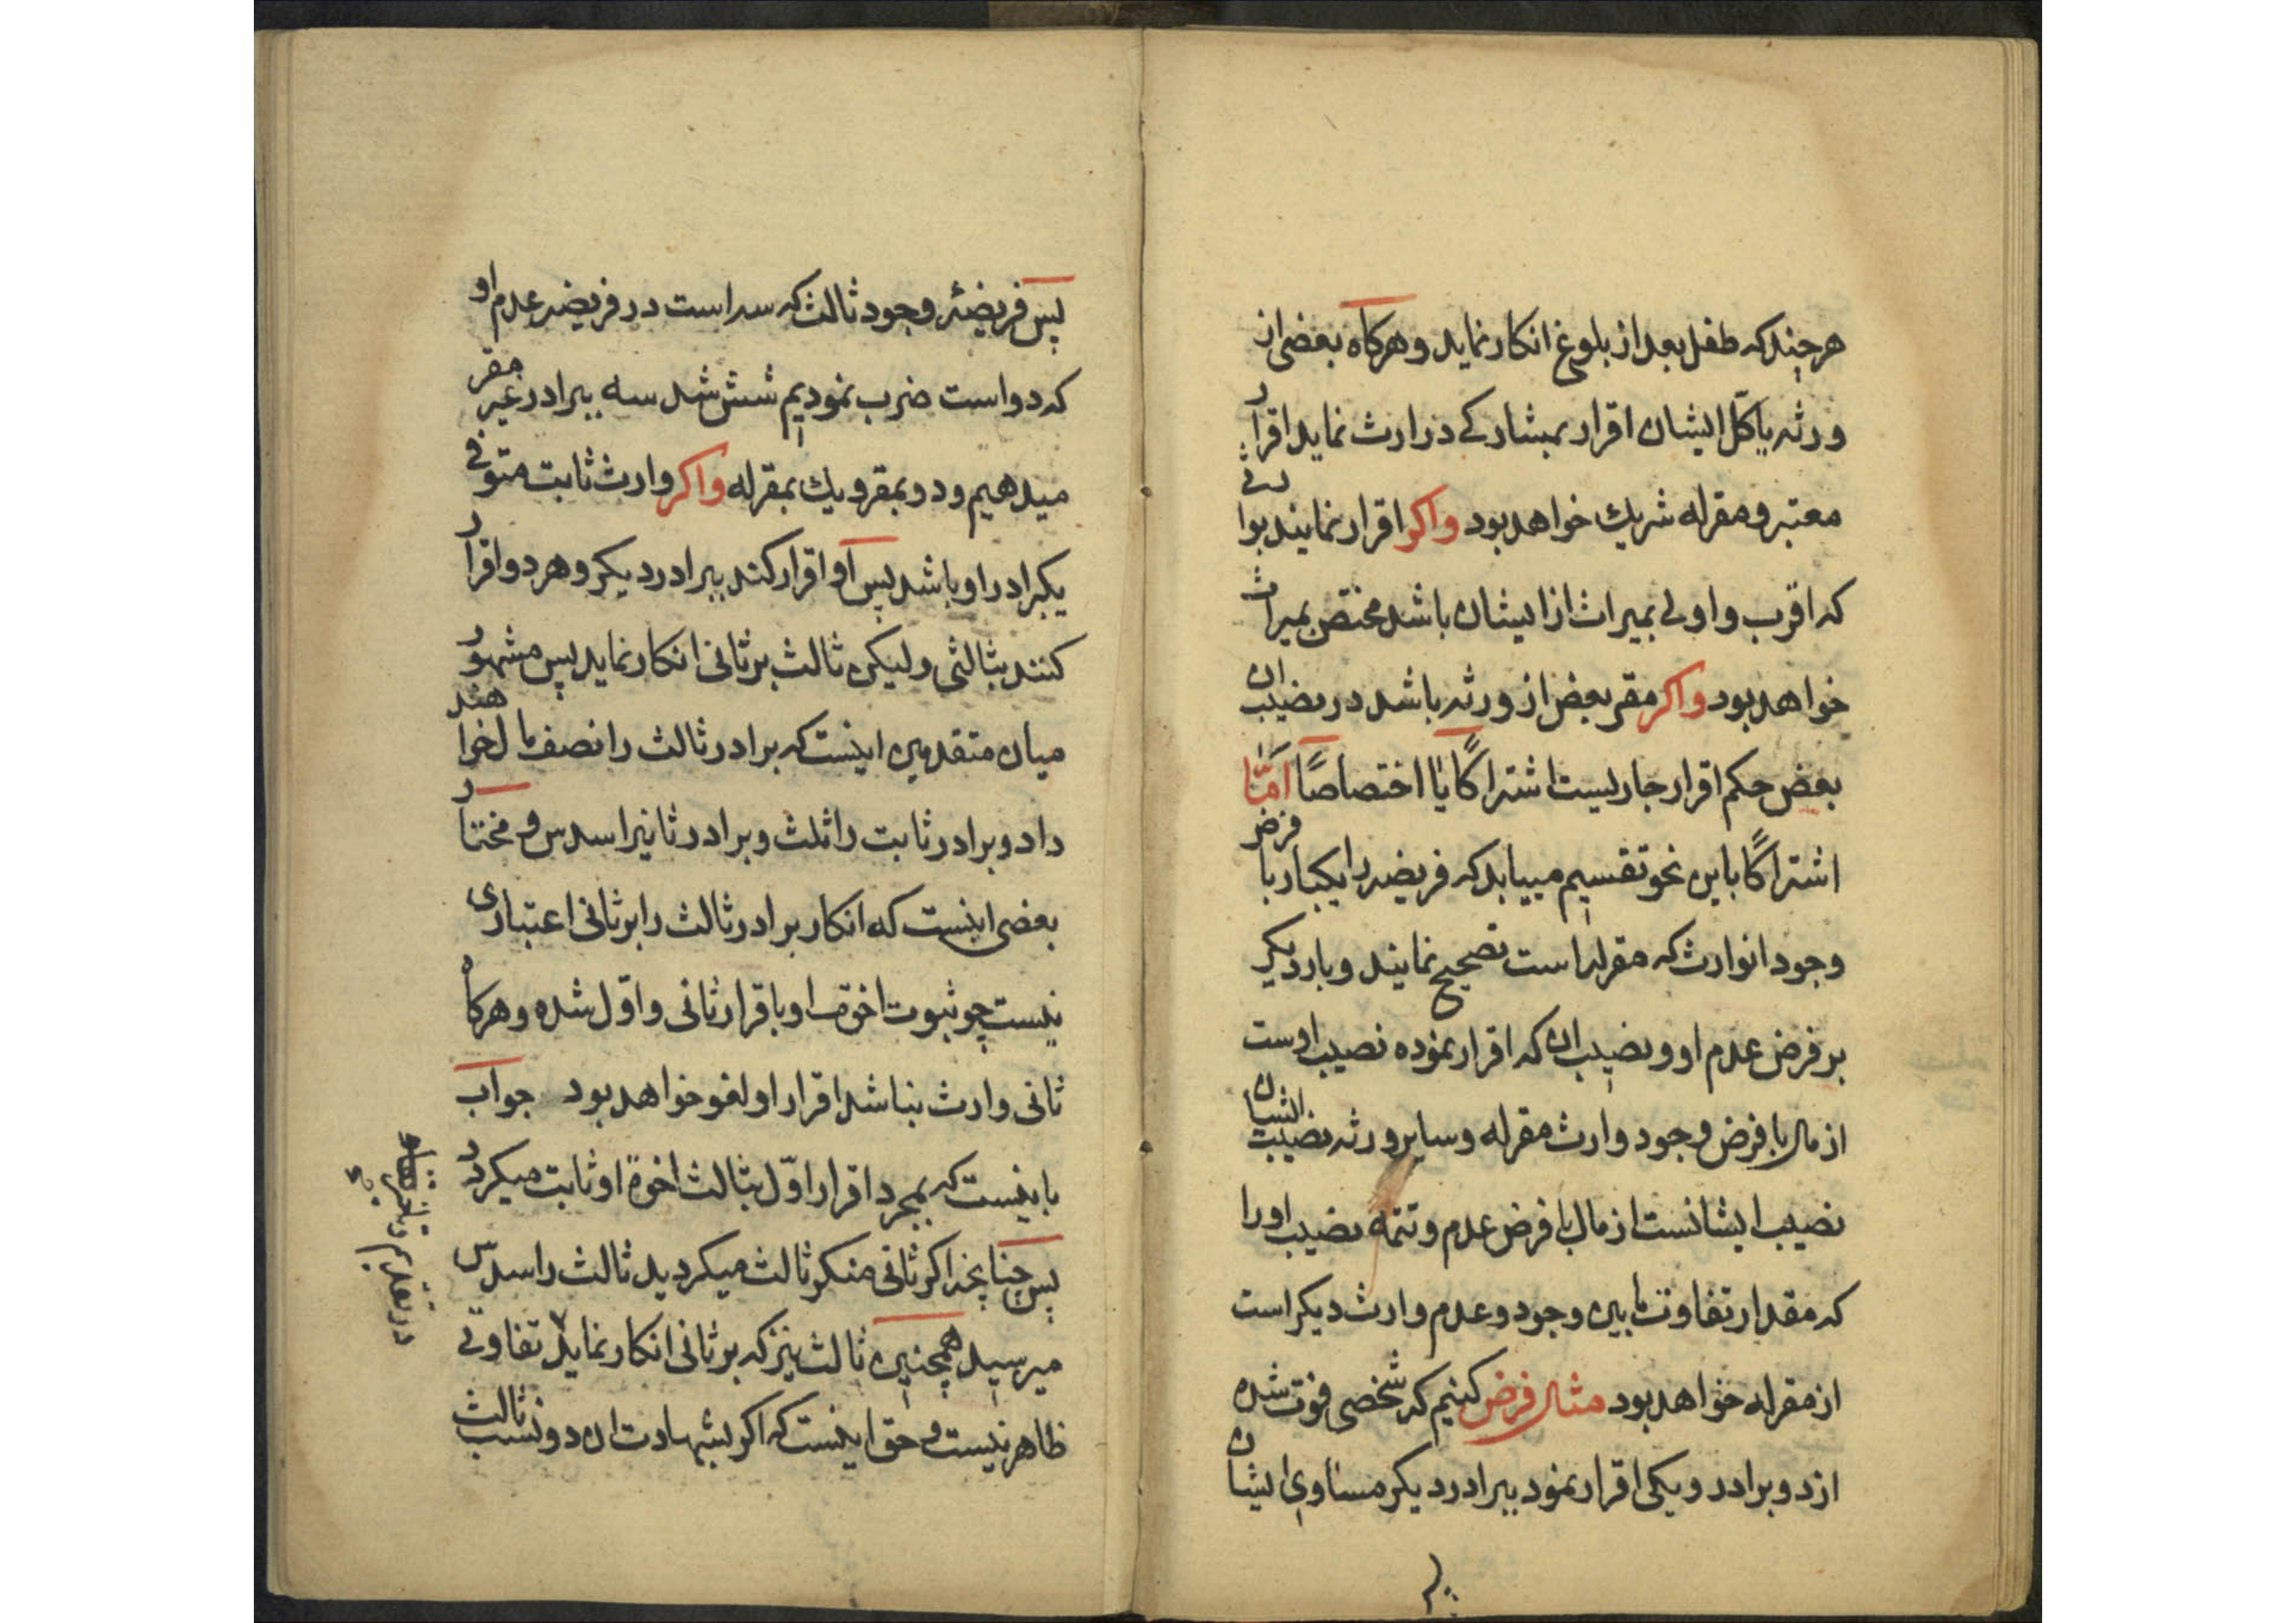 هرچند که طفل بعد از بلوغ انکار نماید و هرکاه بعضی از
ورثه یا کل ایشان اقرار بمشارکے در ارث نماید اقرار
معتبر و مقرله شریك خواهد بود واکر اقرار نمایند بوارثے
که اقرب و اولی بمیراث از ایشان باشد مختص بمیراث
خواهد بود واکر مقر بعض از ورثه باشد در نصیب ان
بعض حکم اقرار جاریست اشتراکًا یا اختصاصًا امّا
اشتراکًا باین نحو تقسیم مییابد که فریضه را یکبار با فرض
وجود انوارث که مقرله است تصحیح نمایند و بار دیکر
بر فرض عدم او و نصیب ان که اقرار نموده نصیب اوست
از مال با فرض وجود وارث مقرله و سایر ورثه نصیب ایشان
نصیب ایشانست از مال با فرض عدم و تتمه نصیب او را
که مقدار تفاوت ما بین وجود و عدم وارث دیکر است
از مقرله خواهد بود مثال فرض کنیم که شخصی فوت شده
از دو برادر و یکی اقرار نمود ببرادر دیکر مساوی ایشان
پس فریضهٔ وجود ثالث که سه است در فریضه عدم او
که دو است ضرب نمودیم شش شد سه ببرادر غیر مقر
میدهیم و دو بمقر و یك بمقرله واکر وارث ثابت متوفی
یکبرادر او باشد پس او اقرار کند ببرادر دیکر و هر دو اقرار
کنند بثالثی و لیکن ثالث بر ثانی انکار نماید پس مشهور
میان متقدمین اینست که برادر ثالث را نصف مال خواهند
داد و برادر ثابت را ثلث و برادر ثانیرا سدس و مختار
بعضی اینست که انکار برادر ثالث را بر ثانی اعتباری
نیست چو ثبوت اخوت او باقرار ثانی و اوّل شده و هرکاه
ثانی وارث بناشد اقرار او لغو خواهد بود جواب
باینست که بمجرد اقرار اوّل بثالث اخوة او ثابت میکردد
پس چنانچه اکر ثانی منکر ثالث میکردید ثالث را سدس
میرسید همچنین ثالث نیز که بر ثانی انکار نماید تفاوتی
ظاهر نیست و حق اینست که اکر بشهادت ان دو نسب ثالث